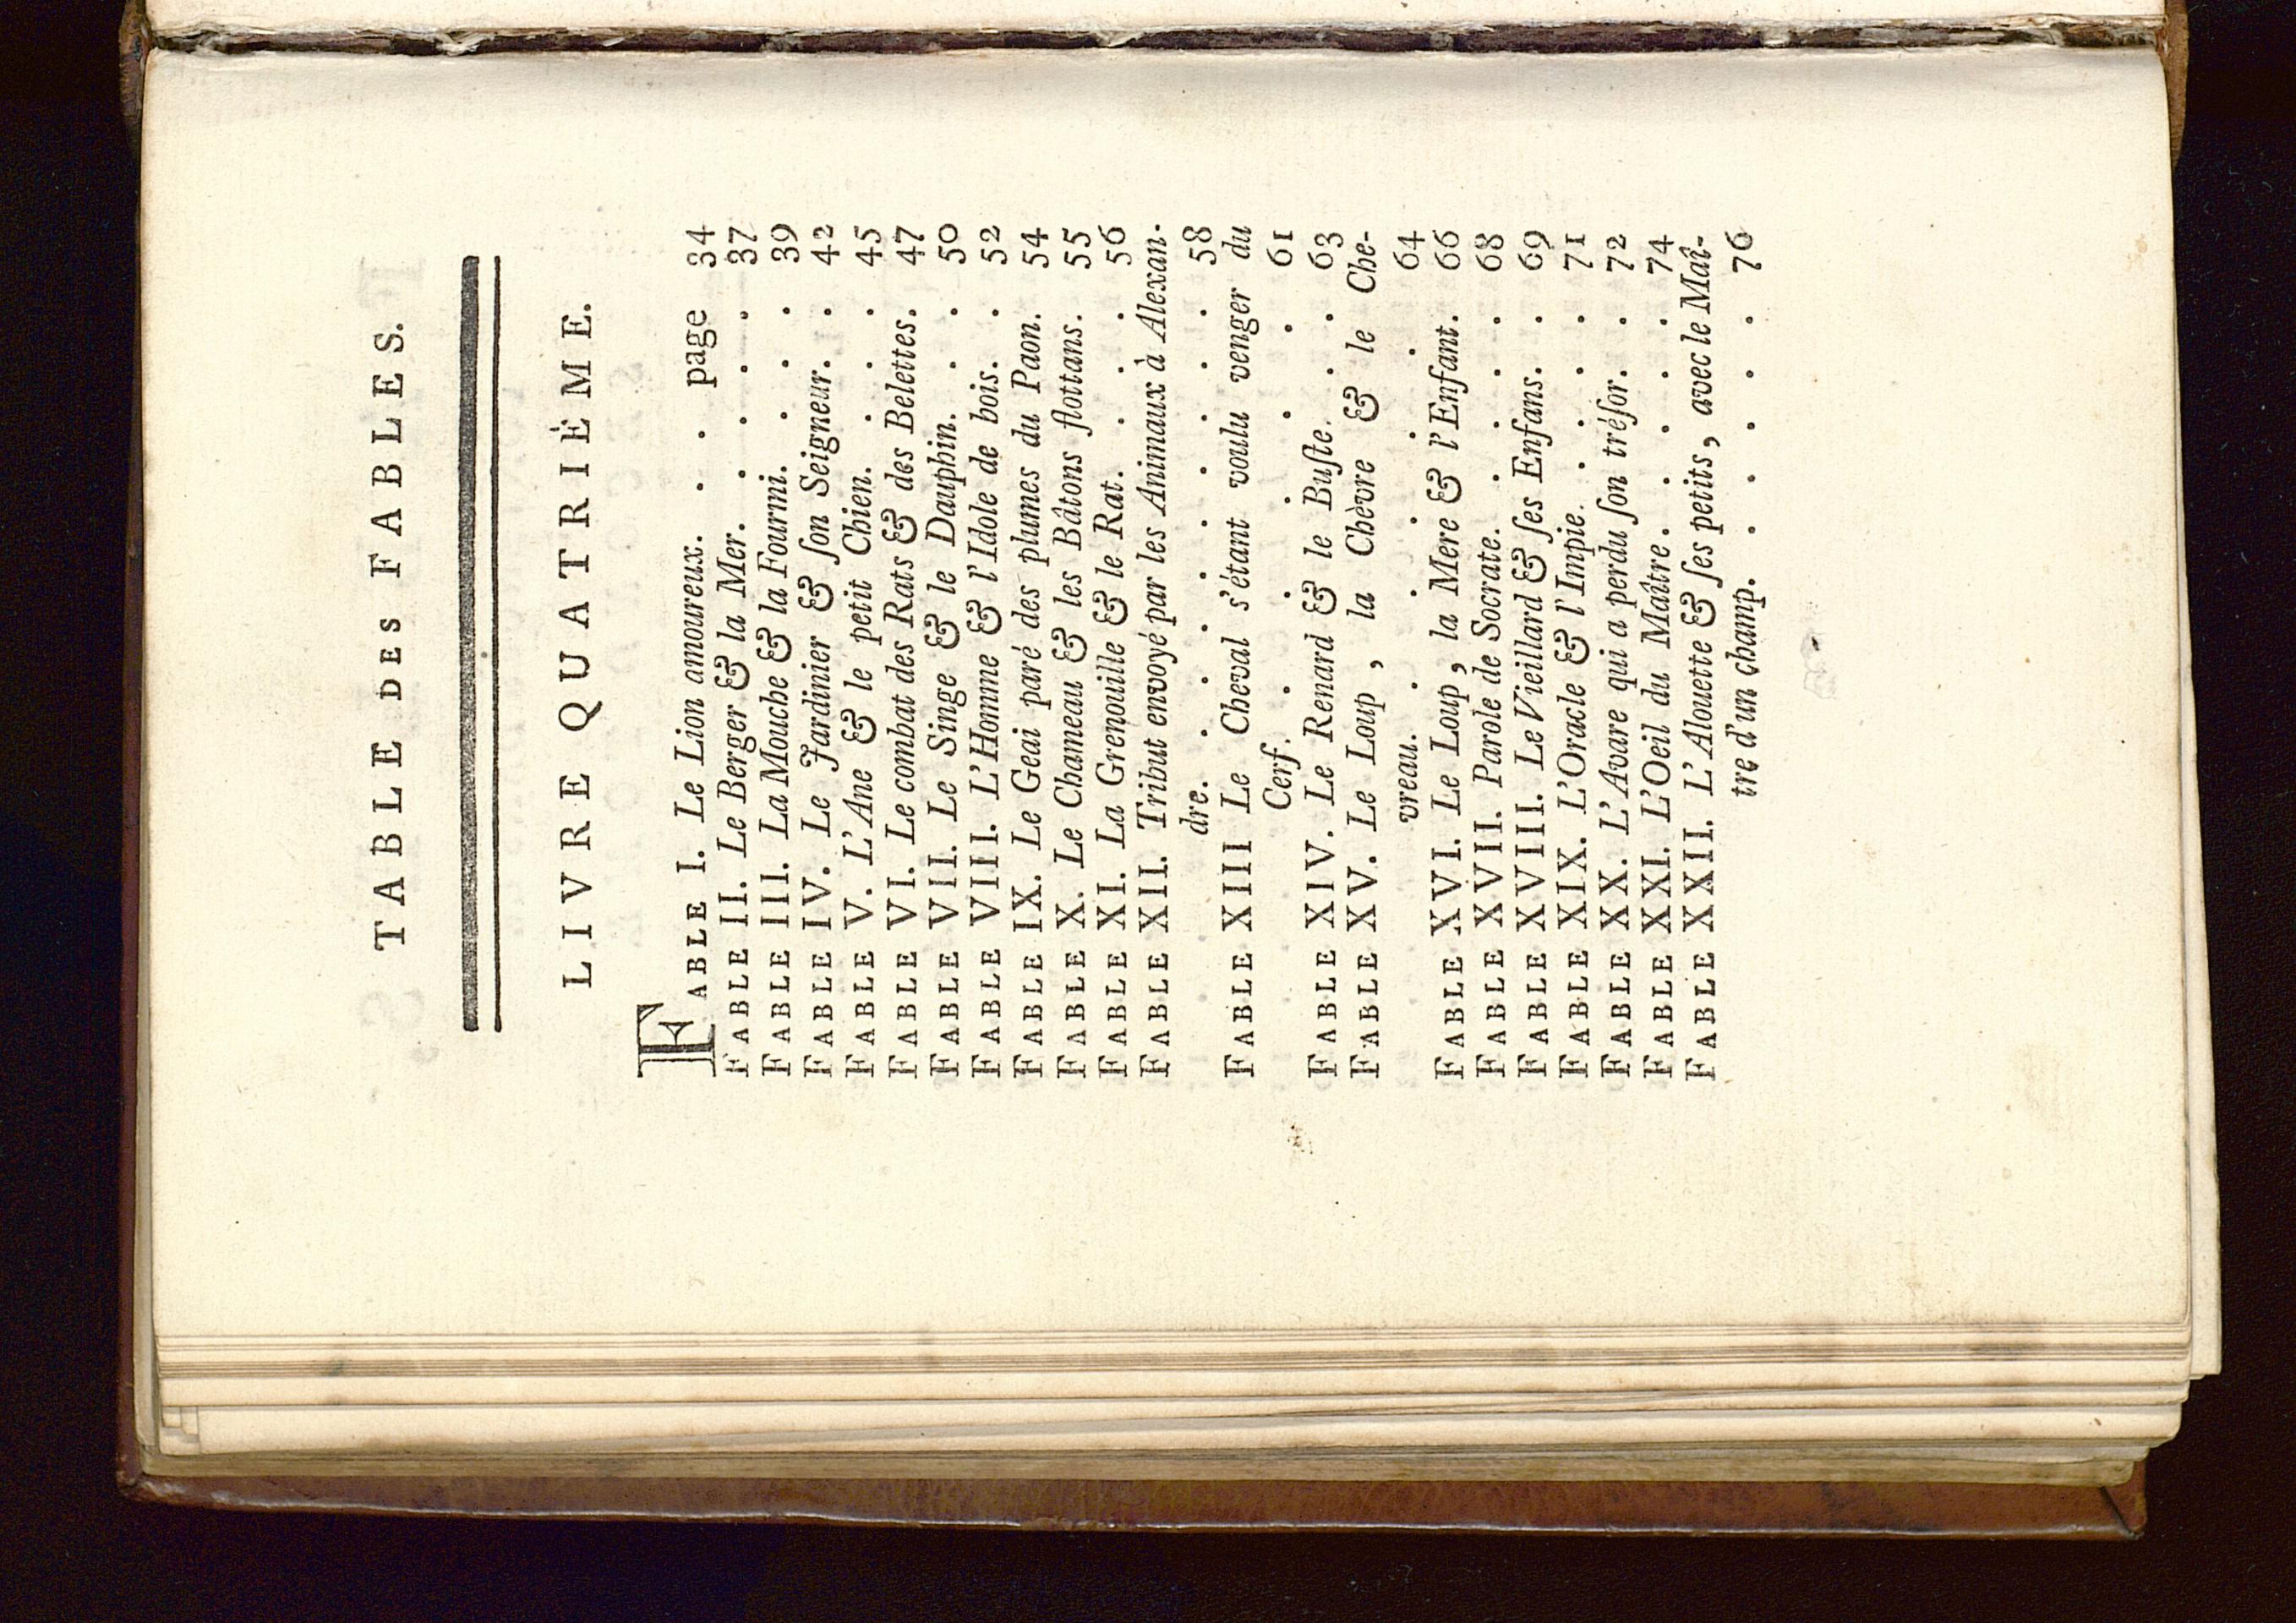 TABLE DES FABLES.
LIVRE QUATRIÈME.
FABLE I. Le Lion amoureux. . . . page 34
FABLE II. Le Berger & la Mer. . . . . . 37
FABLE III. La Mouche & la Fourmi. . . . 39
FABLE IV. Le Jardinier & ſon Seigneur. . 42
FABLE V. L'Ane & le petit Chien. . . . 45
FABLE VI. Le combat des Rats & des Belettes. 47
FABLE VII. Le Singe & le Dauphin. . . 50
FABLE VIII. L'Homme & l'Idole de bois. . 52
FABLE IX. Le Geai paré des plumes du Paon. 54
FABLE X. Le Chameau & les Bâtons flottans. 55
FABLE XI. La Grenouille & le Rat. . . . 56
FABLE XII. Tribut envoyé par les Animaux à Alexan-
dre. . . . . . . . . . 58
FABLE XIII Le Cheval s'étant voulu venger du
Cerf. . . . . . . . 61
FABLE XIV. Le Renard & le Buſte. . . 63
FABLE XV. Le Loup, la Chèvre & le Che-
vreau. . . . . . . 64
FABLE XVI. Le Loup, la Mere & l'Enfant. 66
FABLE XVII. Parole de Socrate. . . . . 68
FABLE XVIII. Le Vieillard & ſes Enfans. . 69
FABLE XIX. L'Oracle & l'Impie. . . . . 71
FABLE XX. L'Avare qui a perdu ſon tréſor. . 72
FABLE XXI. L'Oeil du Maître. . . . . 74
FABLE XXII. L'Alouette & ſes petits, avec le Maî-
tre d'un champ. . . . . . 76